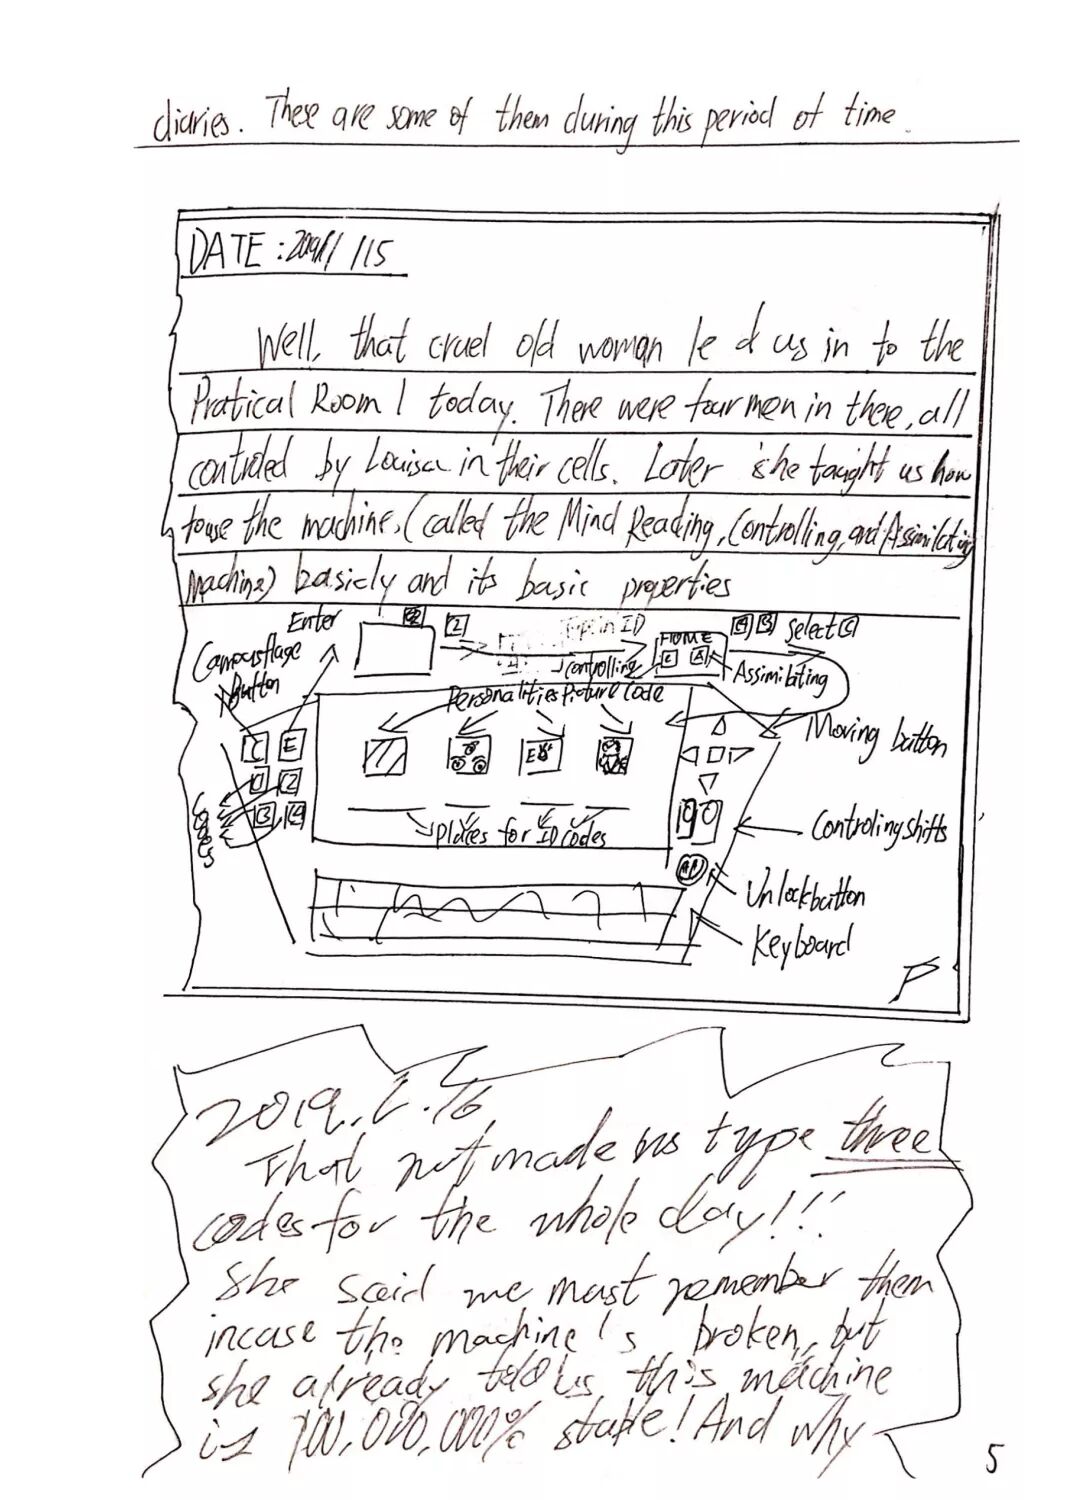 diaries. These are some of them during this period of time.
DATE : 2019/1/15
Well, that cruel old woman led us in to the
Pratical Room 1 today. There were four men in there, all
controled by Louisa in their cells. Later she taught us how
to use the machine, (called the Mind Reading, Controlling, and Assimilating
Machine) basicly and its basic properties
Enter
2
Type in ID
HOME
C A
4 3 Select C
Camousflage
button
Controlling
Assimilating
Personalities Picture Code
Moving button
C E
1 2
3 4
Codes
E
Places for ID codes
Controling shifts
Unlock button
Keyboard
P
2019.1.16
That nut made us type three
codes for the whole day!!!
She said we must remember them
incase the machine's broken, but
she already told us this machine
is 100,000,000% stable! And why
5